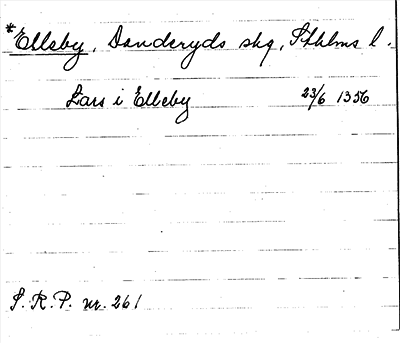 *Ellsby, Danderyds skg, Sthlms l.
Lars i Elleby 23/6 1356
S.R.P. nr. 261